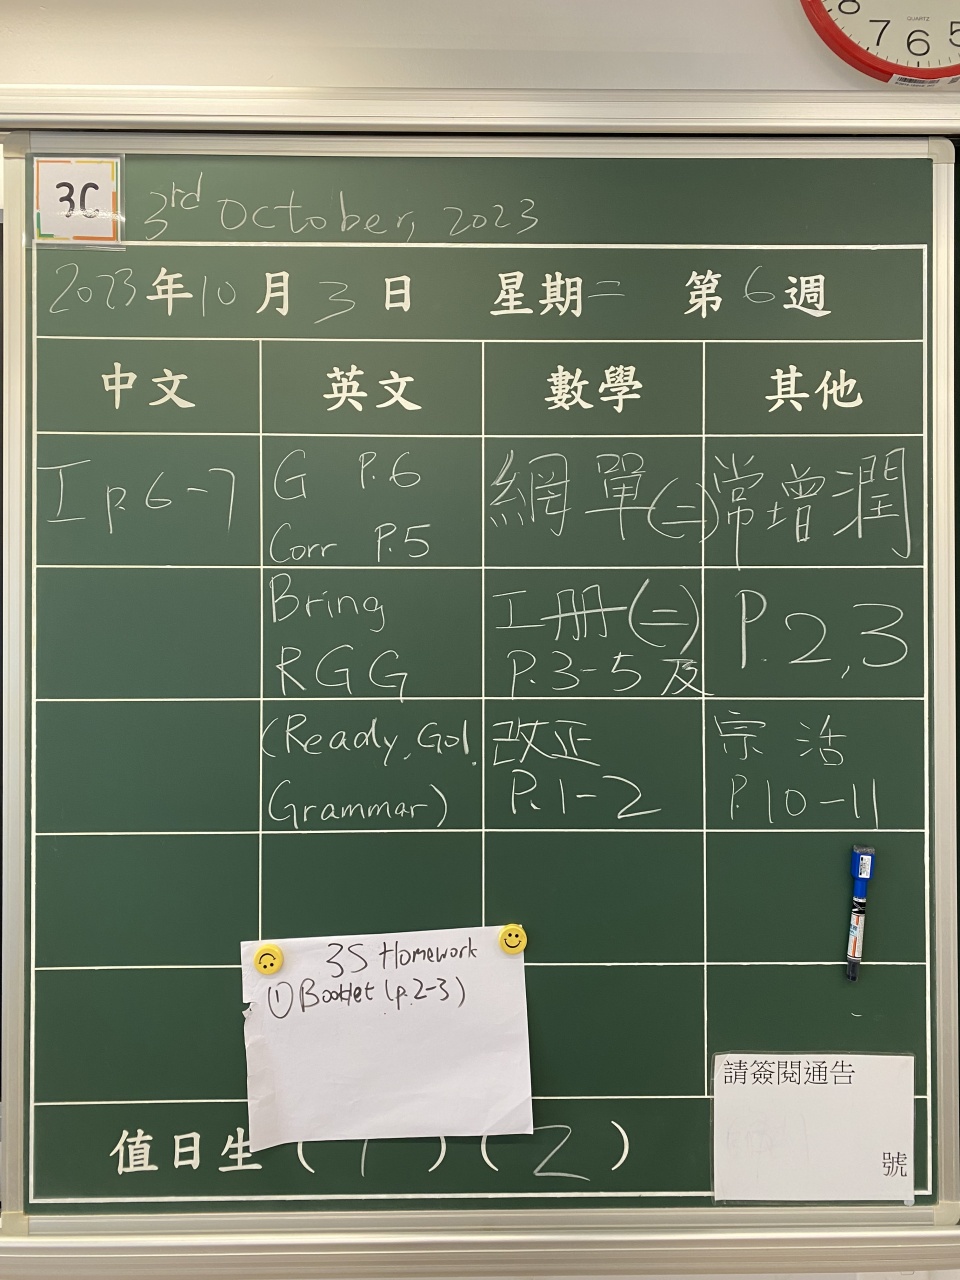 8 7 6 5
QUARTZ
3C
3rd October, 2023
2023年10月3日 星期二 第6週
中文 英文 數學 其他
工 p.6-7
G P.6
Corr P.5
Bring
RGG
(Ready, Go!,
Grammar)
網單(二)
工册(二)
P.3-5 及
改正
P.1-2
常增潤
P.2,3
宗活
P.10-11
3S Homework
① Booklet (p.2-3)
請簽閱通告
號
值日生 (1) (2)